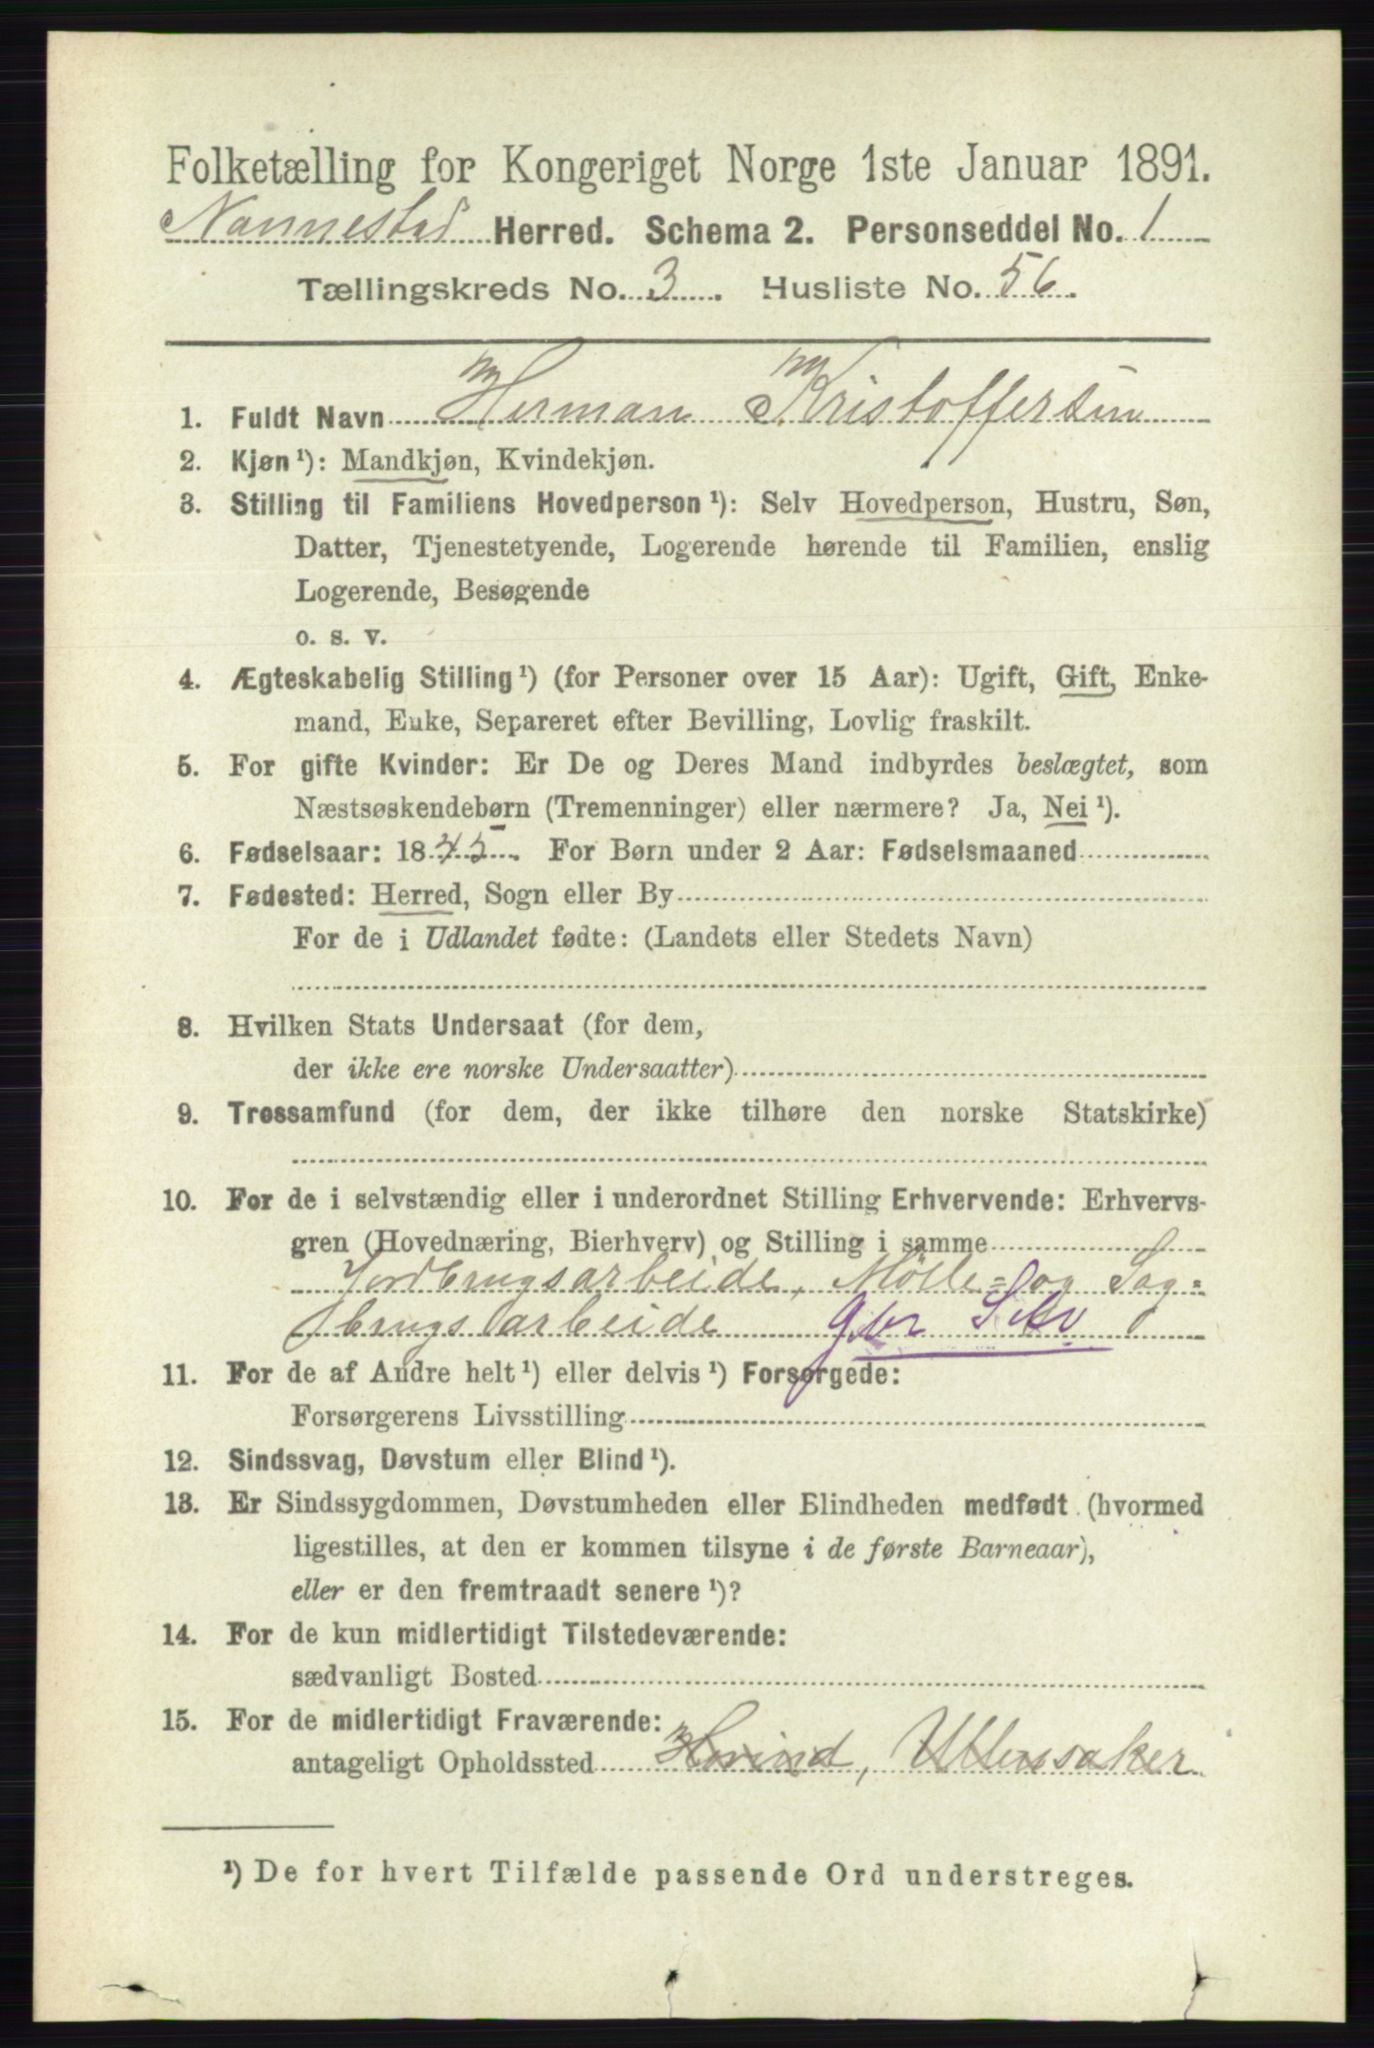 Folketælling for Kongeriget Norge 1ste Januar 1891.
Nannestad Herred. Schema 2. Personseddel No. 1
Tællingskreds No. 3. Husliste No. 56.
1. Fuldt Navn Herman Kristoffersen
2. Kjøn ¹): Mandkjøn, Kvindekjøn.
3. Stilling til Familiens Hovedperson ¹): Selv Hovedperson, Hustru, Søn,
Datter, Tjenestetyende, Logerende hørende til Familien, enslig
Logerende, Besøgende
o. s. v.
4. Ægteskabelig Stilling ¹) (for Personer over 15 Aar): Ugift, Gift, Enke-
mand, Enke, Separeret efter Bevilling, Lovlig fraskilt.
5. For gifte Kvinder: Er De og Deres Mand indbyrdes beslægtet, som
Næstsøskendebørn (Tremenninger) eller nærmere? Ja, Nei ¹).
6. Fødselsaar: 1845. For Børn under 2 Aar: Fødselsmaaned
7. Fødested: Herred, Sogn eller By
For de i Udlandet fødte: (Landets eller Stedets Navn)
8. Hvilken Stats Undersaat (for dem,
der ikke ere norske Undersaatter)
9. Trossamfund (for dem, der ikke tilhøre den norske Statskirke)
10. For de i selvstændig eller i underordnet Stilling Erhvervende: Erhvervs-
gren (Hovednæring, Bierhverv) og Stilling i samme
Jordbrugsarbeide, Mølle= og Sag=
brugsarbeide gbr Selv
11. For de af Andre helt ¹) eller delvis ¹) Forsørgede:
Forsørgerens Livsstilling
12. Sindssvag, Døvstum eller Blind ¹).
13. Er Sindssygdommen, Døvstumheden eller Blindheden medfødt (hvormed
ligestilles, at den er kommen tilsyne i de første Barneaar),
eller er den fremtraadt senere ¹)?
14. For de kun midlertidigt Tilstedeværende:
sædvanligt Bosted
15. For de midlertidigt Fraværende:
antageligt Opholdssted Hovind, Ullensaker
¹) De for hvert Tilfælde passende Ord understreges.